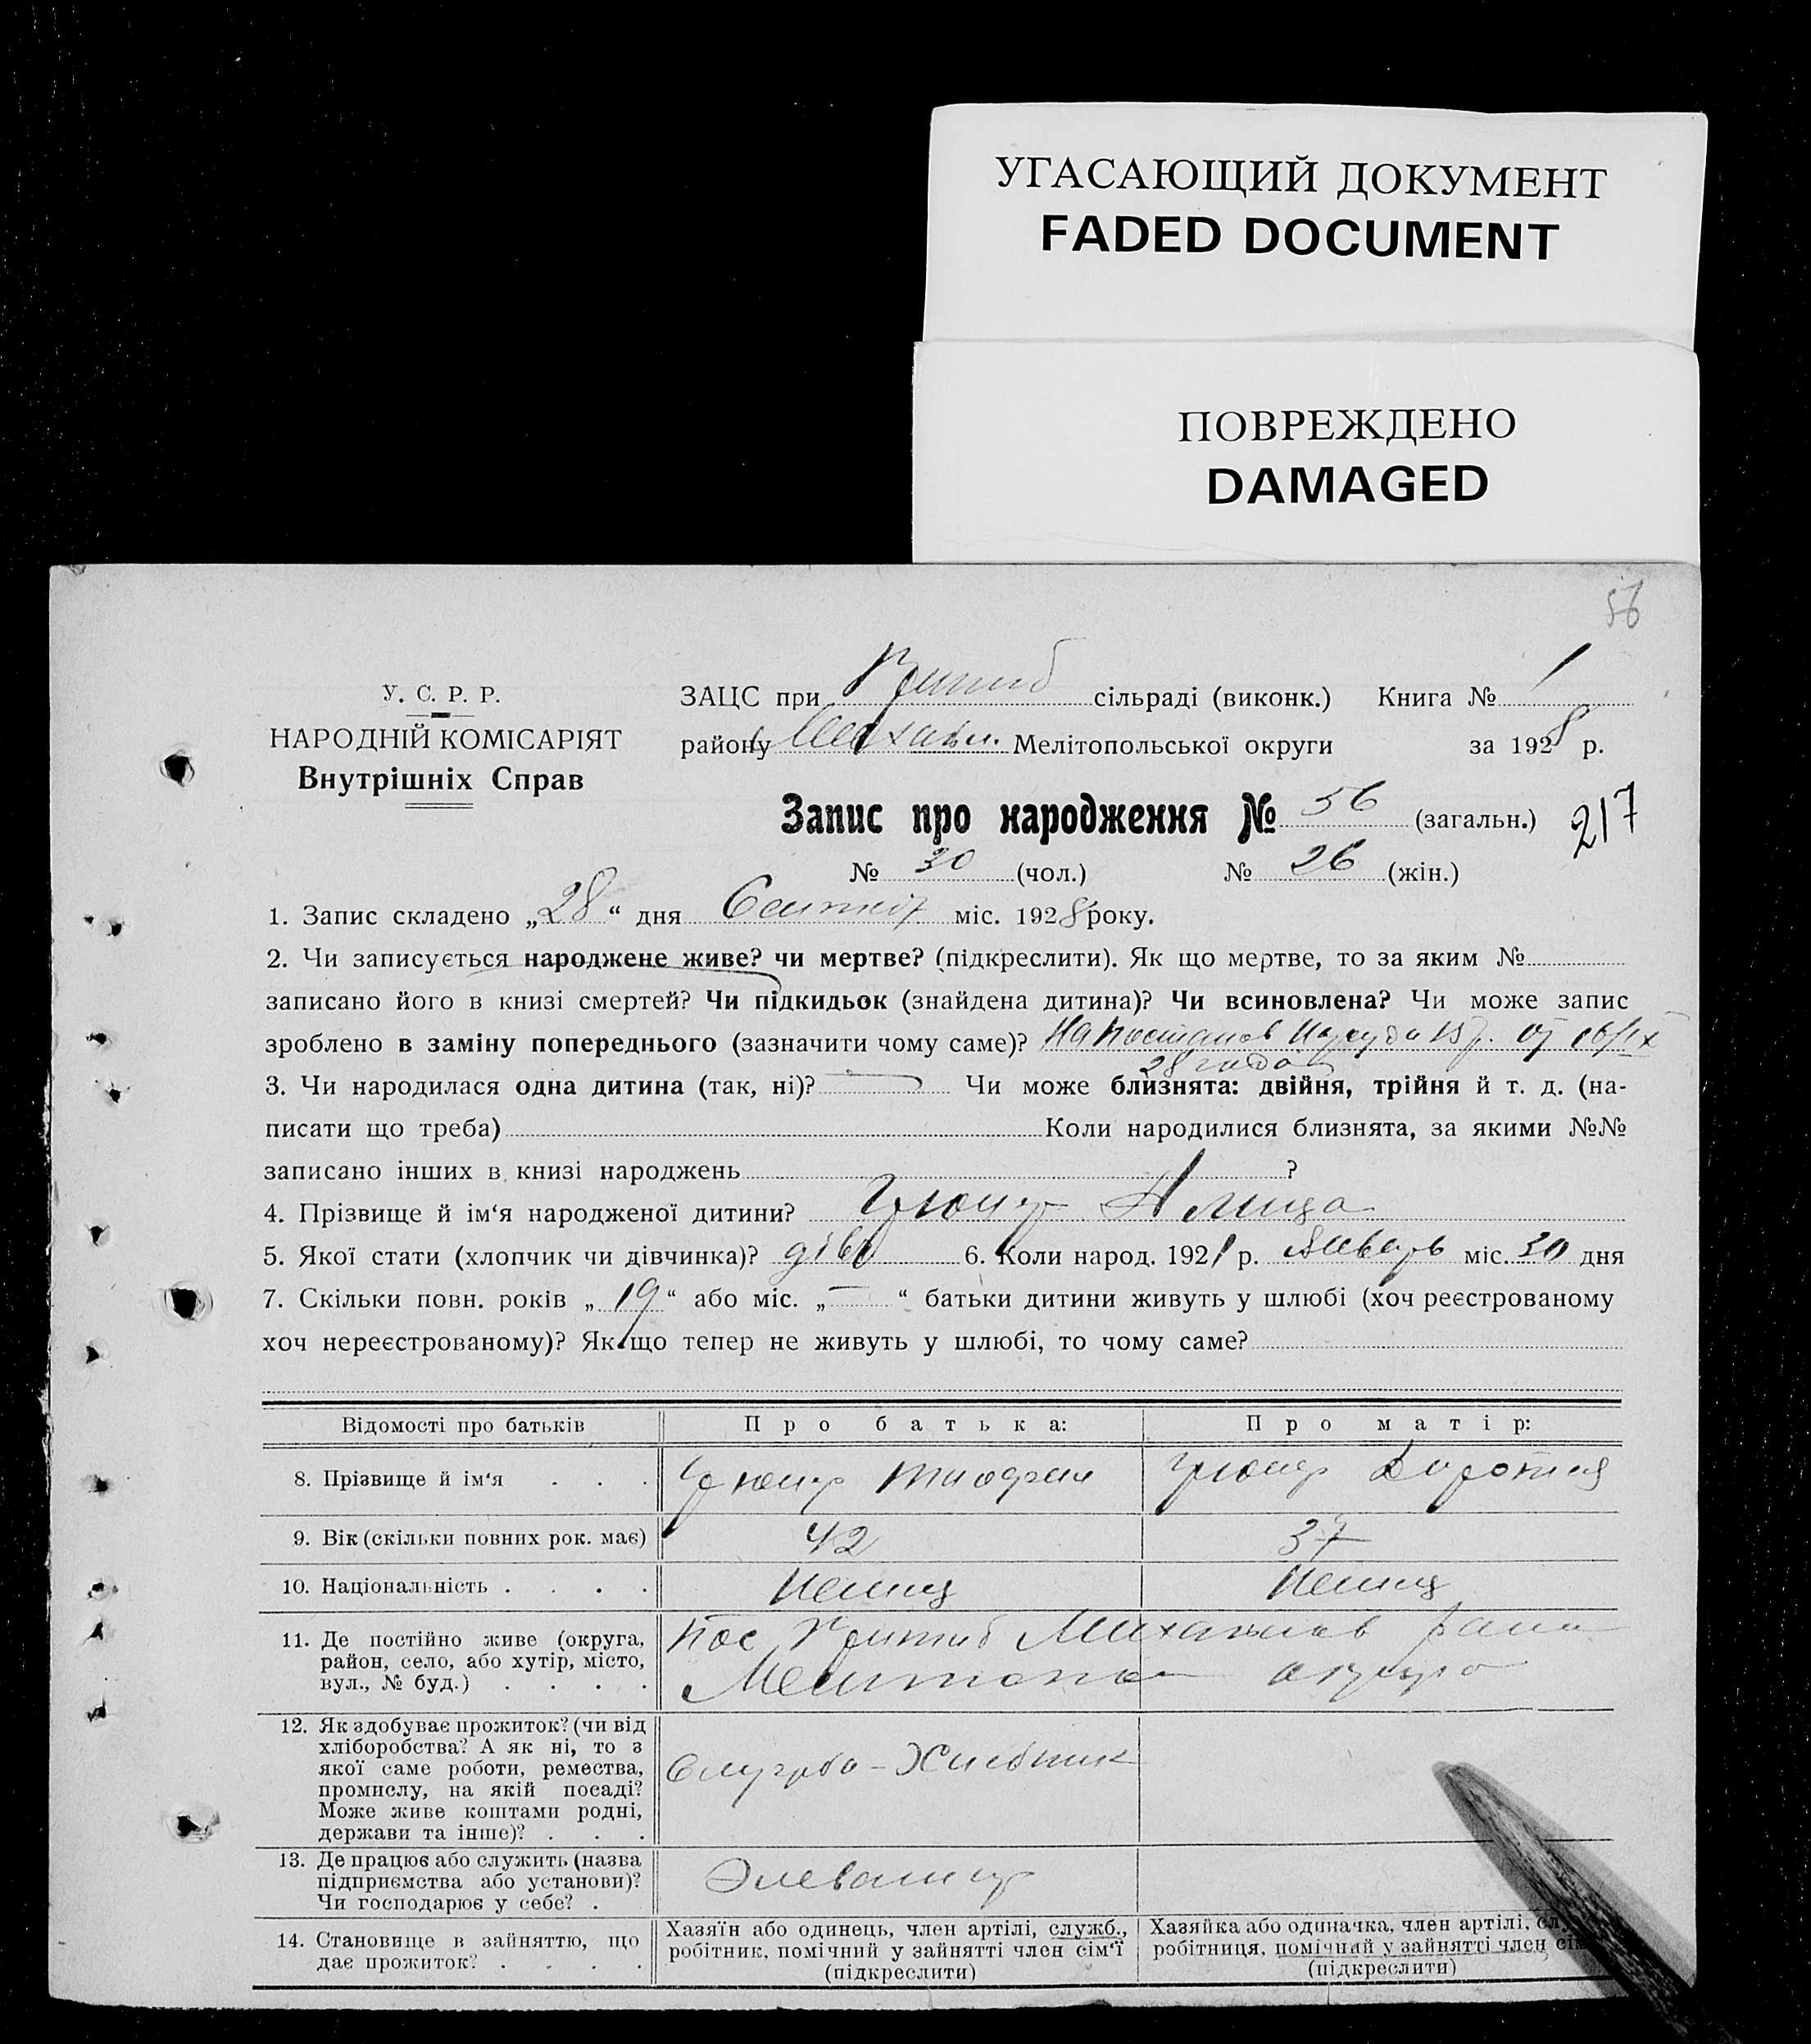 УГАСАЮЩИЙ ДОКУМЕНТ
FADED DOCUMENT
ПОВРЕЖДЕНО
DAMAGED
56
У. С. Р. Р.
НАРОДНІЙ КОМІСАРІЯТ
Внутрішніх Справ
ЗАЦС при Пришиб сільраді (виконк.) Книга № 1
району Михайл. Мелітопольської округи за 1928 р.
Запис про народження № 56 (загальн.) 217
№ 30 (чол.) № 26 (жін.)
1. Запис складено „28“ дня міс. 1928 року.
2. Чи записується народжене живе? чи мертве? (підкреслити). Як що мертве, то за яким №
записано його в книзі смертей? Чи підкидьок (знайдена дитина)? Чи всиновлена? Чи може запис
зроблено в заміну попереднього (зазначити чому саме)?
28 года
3. Чи народилася одна дитина (так, ні)? Чи може близнята: двійня, трійня й т. д. (на-
писати що треба) Коли народилися близнята, за якими №№
записано інших в книзі народжень ?
4. Прізвище й ім‘я народженої дитини?
5. Якої стати (хлопчик чи дівчинка)? дівч 6. Коли народ. 1921 р. Январь міс. 30 дня
7. Скільки повн. років „19“ або міс. „—“ батьки дитини живуть у шлюбі (хоч реєстрованому
хоч нереєстрованому)? Як що тепер не живуть у шлюбі, то чому саме?
Відомості про батьків Про батька: Про матір:
8. Прізвище й ім‘я . . .
9. Вік (скільки повних рок. має) 42 37
10. Національність . . . . Немец Немец
11. Де постійно живе (округа,
район, село, або хутір, місто,
вул., № буд.) . . . .
Пос Пришиб Михайлов
12. Як здобуває прожиток? (чи від
хліборобства? А як ні, то з
якої саме роботи, ремества,
промислу, на якій посаді?
Може живе коштами родні,
держави та інше)? . . .
13. Де працює або служить (назва
підприємства або установи)?
Чи господарює у себе? .
Элеватор
14. Становище в зайняттю, що
дає прожиток? . . . .
Хазяїн або одинець, член артілі, служб.,
робітник, помічний у зайнятті член сім‘ї
(підкреслити)
Хазяйка або одиначка, член артілі,
робітниця, помічний у зайнятті член
(підкреслити)